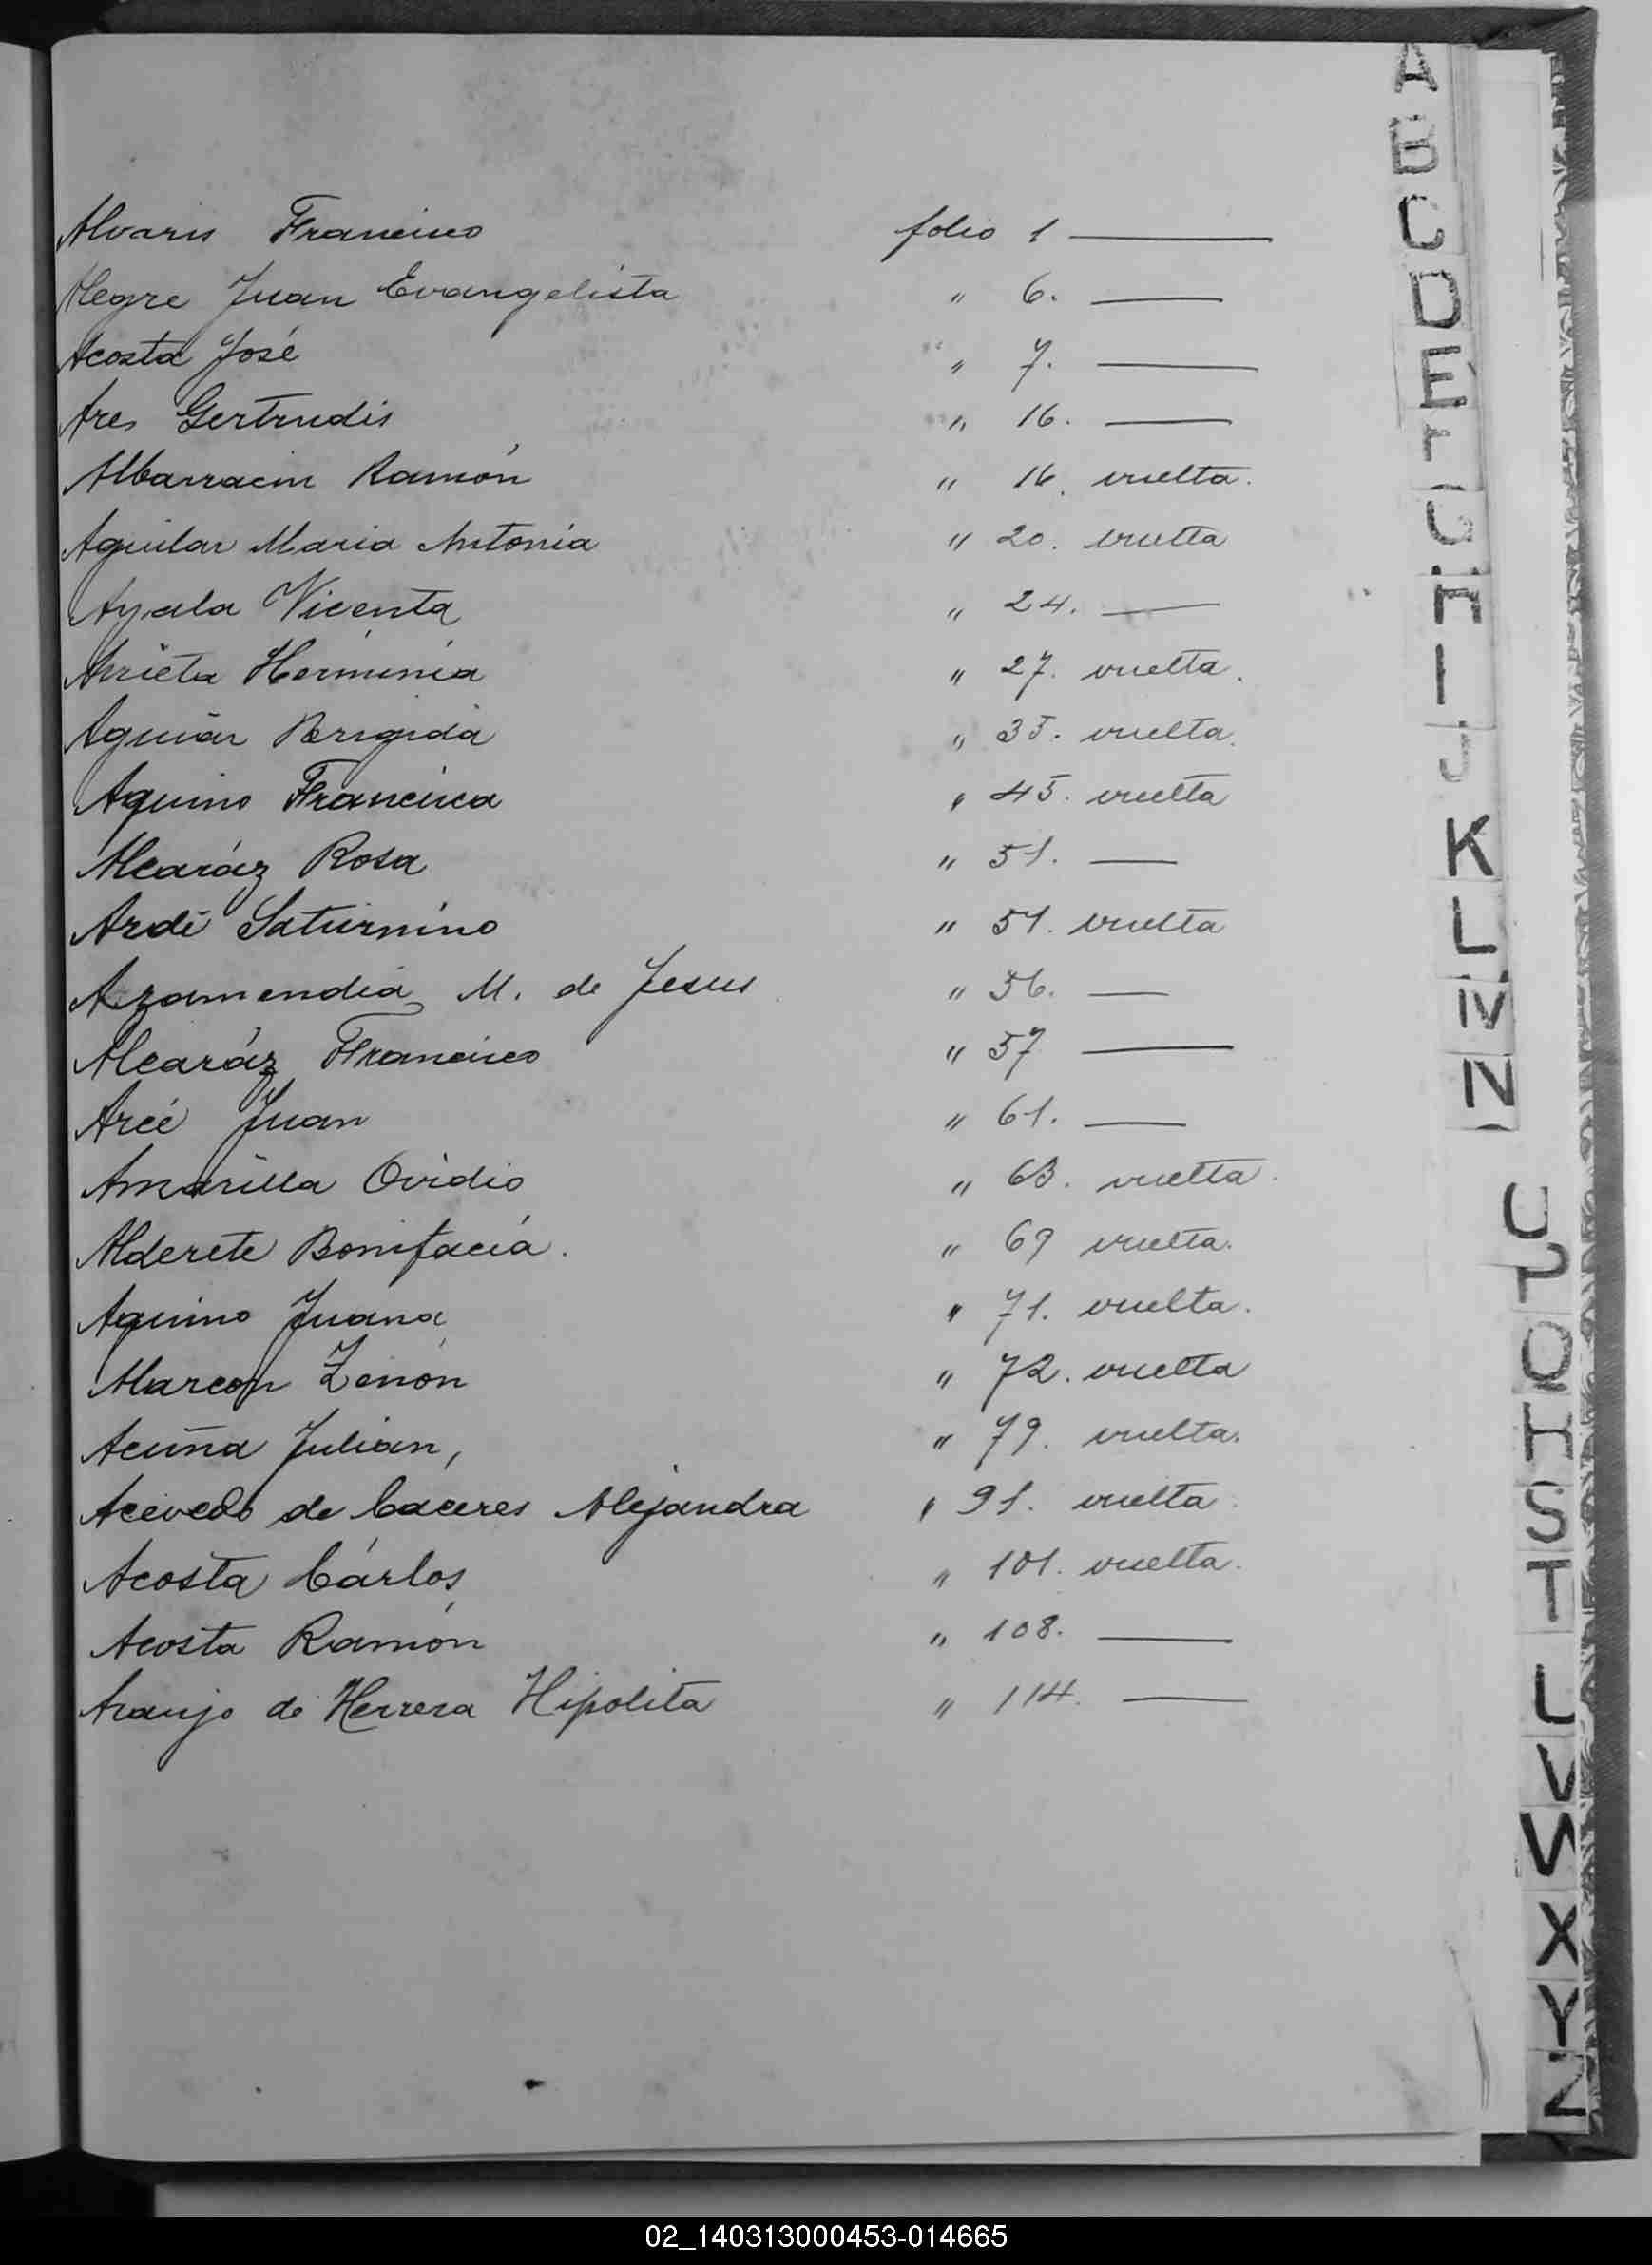 Alvaris Francisco folio 1 ———
Alegre Juan Evangelista " 6. ———
Acosta José " 7. ———
Ares Gertrudis " 16. ———
Albarracin Ramón " 16. vuelta.
Aguilar Maria Antonia " 20. vuelta
Ayala Vicenta " 24. ———
Arrieta Herminia " 27. vuelta.
Aguiar Brigida " 35. vuelta.
Aquino Francisca " 45. vuelta
Alcaráz Rosa " 51. ———
Ardi Saturnino " 51. vuelta
Azamendia M. de Jesus " 56. ———
Alcaráz Francisco " 57 ———
Arce Juan " 61. ———
Amarilla Ovidio " 63. vuelta.
Alderete Bonifacia. " 69 vuelta.
Aquino Juana " 71. vuelta.
Alarcon Zenón " 72. vuelta
Acuña Julian, " 79. vuelta.
Acevedo de Caceres Alejandra " 91. vuelta.
Acosta Cárlos " 101. vuelta.
Acosta Ramón " 108. ———
Araujo de Herrera Hipolita " 114. ———
A
B
C
D
E
F
G
H
I
J
K
L
M
N
O
P
Q
R
S
T
U
V
W
X
Y
Z
02_140313000453-014665